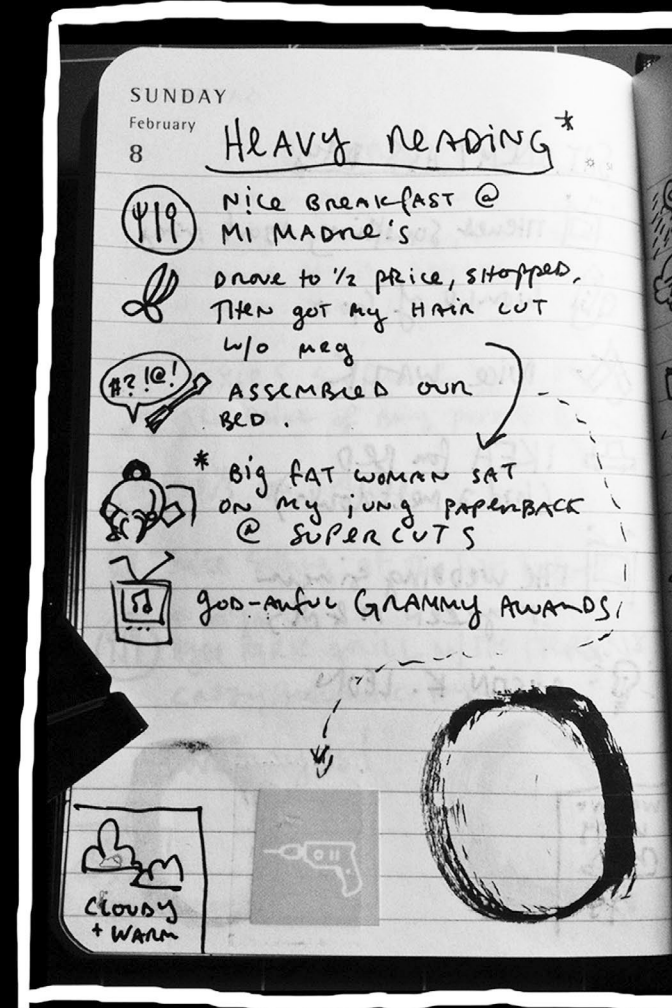 SUNDAY
February
8
HEAVY READING*
NICE BREAKFAST @
MI MADRE'S
DROVE TO 1/2 PRICE, SHOPPED,
THEN GOT MY HAIR CUT
W/O MEG
#?!@!
ASSEMBLED OUR
BED.
* BIG FAT WOMAN SAT
ON MY JUNG PAPERBACK
@ SUPERCUTS
GOD-AWFUL GRAMMY AWARDS
CLOUDY
+ WARM